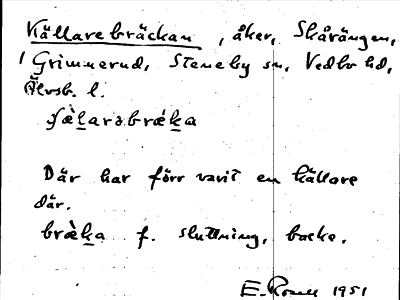 Källarebräckan, åker, Skårängen,
/ Grimnerud, Steneby sn, Vedbo hd,
Älvsb. l.
Där har förr varit en källare
där.
bræ̀ka f. sluttning, backe.
E. 1951